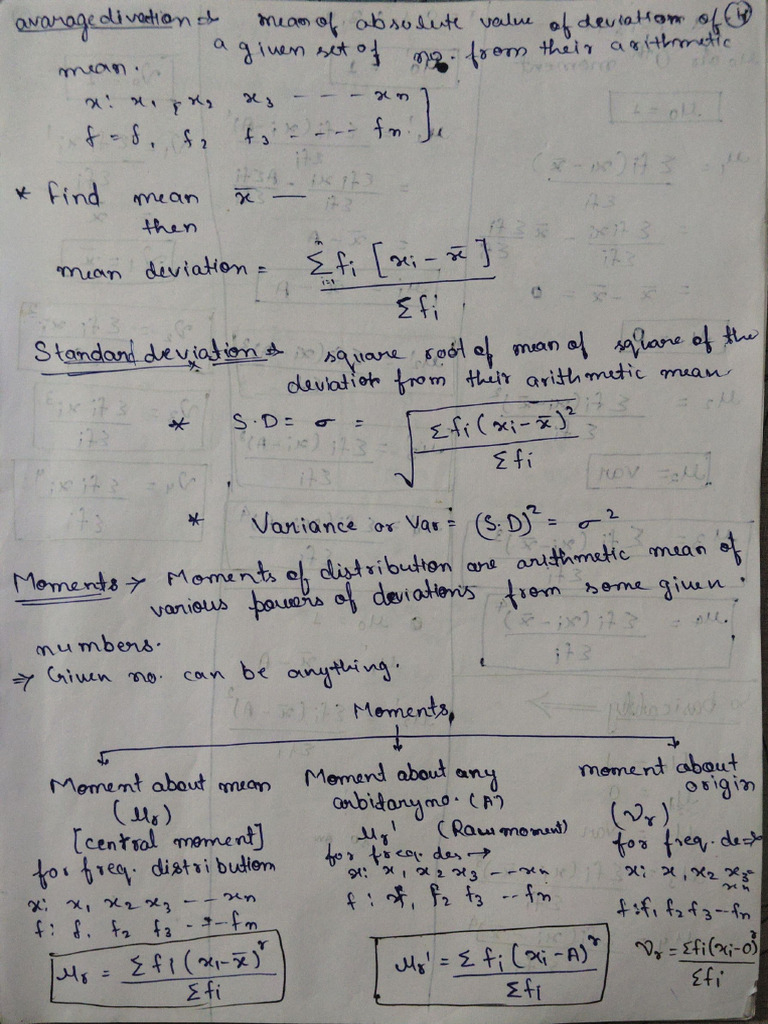 avarage divation ⇒ mean of absolute value of deviation of (4)
a given set of no. from their arithmetic
mean.
x: x₁, x₂ x₃ - - - - xₙ
f = f₁ f₂ f₃ - - - - fₙ
* find mean x̄ —
then
mean deviation = Σᵢ₌₁ⁿ fᵢ [xᵢ - x̄] / Σfᵢ
Standard deviation ⇒ square root of mean of square of the
deviation from their arithmetic mean
* S.D = σ = √(Σfᵢ(xᵢ - x̄)² / Σfᵢ)
* Variance or Var = (S.D)² = σ²
Moments → Moments of distribution are arithmetic mean of
various powers of deviations from some given
numbers.
⇒ Given no. can be anything.
Moments
Moment about mean
(μᵣ)
[central moment]
for freq. distribution
x: x₁ x₂ x₃ - - - xₙ
f: f₁ f₂ f₃ - - - fₙ
μᵣ = Σfᵢ(xᵢ - x̄)ʳ / Σfᵢ
Moment about any
arbidary no. (A)
μᵣ' (Raw moment)
for freq. des →
x: x₁ x₂ x₃ - - - xₙ
f: f₁ f₂ f₃ - - fₙ
μᵣ' = Σfᵢ(xᵢ - A)ʳ / Σfᵢ
moment about
origin
(νᵣ)
for freq. de ⇒
x: x₁ x₂ x₃ -
xₙ
f: f₁ f₂ f₃ -- fₙ
νᵣ = Σfᵢ(xᵢ - 0)ʳ / Σfᵢ